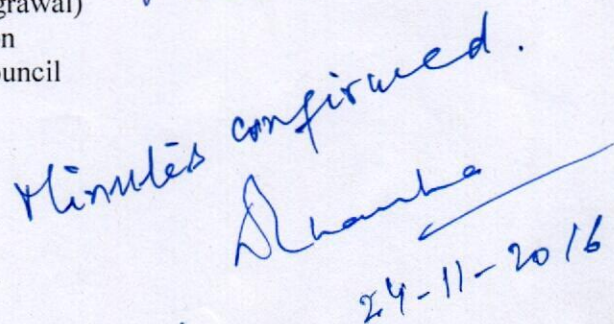 grawal)
on
ouncil
Minutes confirmed.
24-11-2016